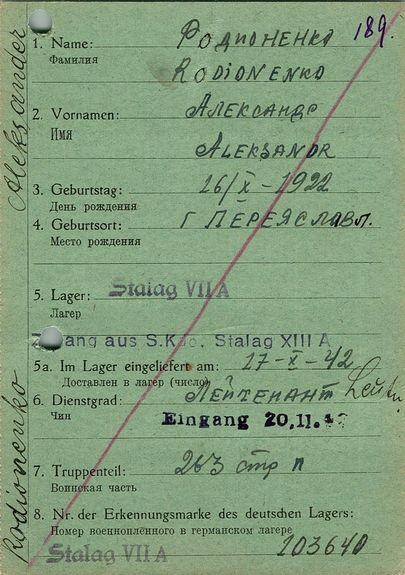 189.
1. Name: Родионенко
Фамилия
RODIONENKO
2. Vornamen: Александр
Имя
ALEKSANDR
3. Geburtstag: 16/X-1922
День рождения
4. Geburtsort: г Переяславл.
Место рождения
5. Lager: Stalag VII A
Лагер
aus S.Kdo, Stalag XIII A
5a. Im Lager eingeliefert am: 17-X-42
Доставлен в лагер (число)
6. Dienstgrad: Лейтенант Leutn.
Чин
Eingang 20.11.
7. Truppenteil: 263 стр п
Воинская часть
8. Nr. der Erkennungsmarke des deutschen Lagers:
Номер военнопленного в германском лагере
Stalag VII A 103640
Rodionenko Aleksander